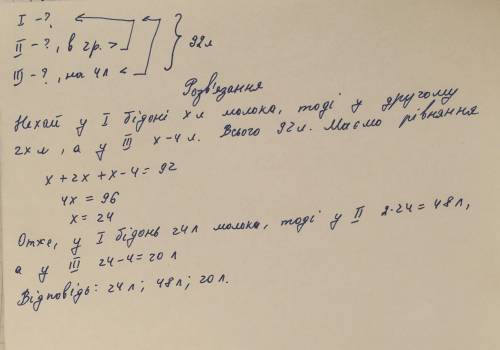 I -?
II -?, в 2р. >
III -?, на 4л <
92л
Розв'язання
Нехай у I бідоні x л молока, тоді у другому
2x л, а у III x-4 л. Всього 92 л. Маємо рівняння
x + 2x + x - 4 = 92
4x = 96
x = 24
Отже, у I бідонь 24 л молока, тоді у II 2·24 = 48 л,
а у III 24-4=20 л
Відповідь: 24 л; 48 л; 20 л.